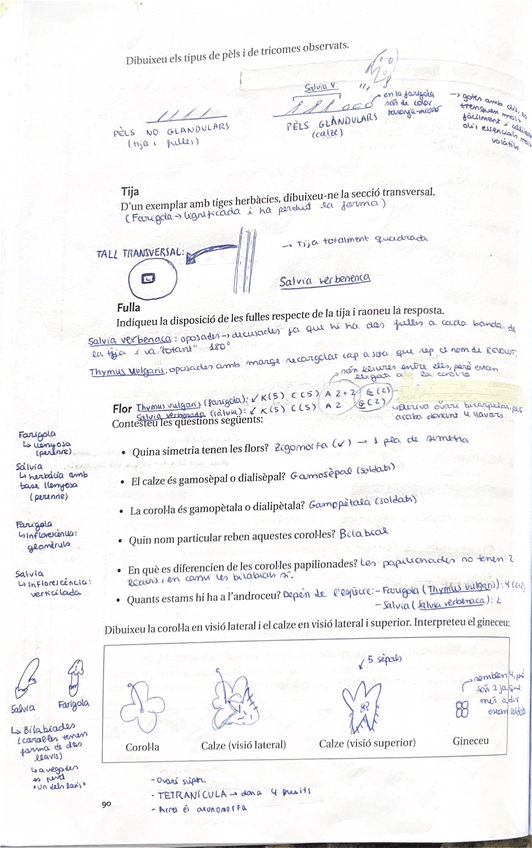 Dibuixeu els tipus de pèls i de tricomes observats.
Salvia V.
PÈLS NO GLANDULARS
(tija i fulles)
PÈLS GLANDULARS
(calze)
en la farigola
són de color
→ gotes amb
olis essencials
Tija
D'un exemplar amb tiges herbàcies, dibuixeu-ne la secció transversal.
(Farigola → lignificada i ha perdut la forma)
TALL TRANSVERSAL:
→ Tija totalment quadrada
Salvia verbeneca
Fulla
Indiqueu la disposició de les fulles respecte de la tija i raoneu la resposta.
Salvia verbenaca: oposades → decusades ja que hi ha dos fulles a cada banda de
la tija i va "rotant" 180°
Thymus vulgaris: oposades amb marge recargolat cap a sota que rep el nom de
són lliures entre ells, però estan
a la corol·la
Flor Thymus vulgaris (farigola): ↙ K(5) C(5) A 2+2 G(2)
Salvia verbenaca (sàlvia): ↙ K(5) C(5) A 2 G(2)
acaba donant 4 llavors
Contesteu les qüestions següents:
• Quina simetria tenen les flors? Zigomorfa (↙) → 1 pla de simetria
• El calze és gamosèpal o dialisèpal? Gamosèpal (soldats)
• La corol·la és gamopètala o dialipètala? Gamopètala (soldats)
• Quin nom particular reben aquestes corol·les? Bilabial
• En què es diferencien de les corol·les papilionades? Les papilionades no tenen 2
en canvi les bilabials sí.
• Quants estams hi ha a l'androceu? Depèn de l'espècie: - Farigola (Thymus vulgaris): 4
- Salvia (Salvia verbenaca): 2
Farigola
↳ llenyosa
(perenne)
Sàlvia
↳ herbàcia amb
base llenyosa
(perenne)
Farigola
↳ Inflorescència:
glomèruls
Salvia
↳ Inflorescència:
verticilada
Dibuixeu la corol·la en visió lateral i el calze en visió lateral i superior. Interpreteu el gineceu:
5 sèpals
Corol·la
Calze (visió lateral)
Calze (visió superior)
Gineceu
Salvia
Farigola
↳ Bilabiades
(corol·les tenen
forma de dos
llavis)
↳ a vegades
es perd
"un dels llavis"
- Ovari súper
- TETRANÍCULA → dona 4 fruits
90